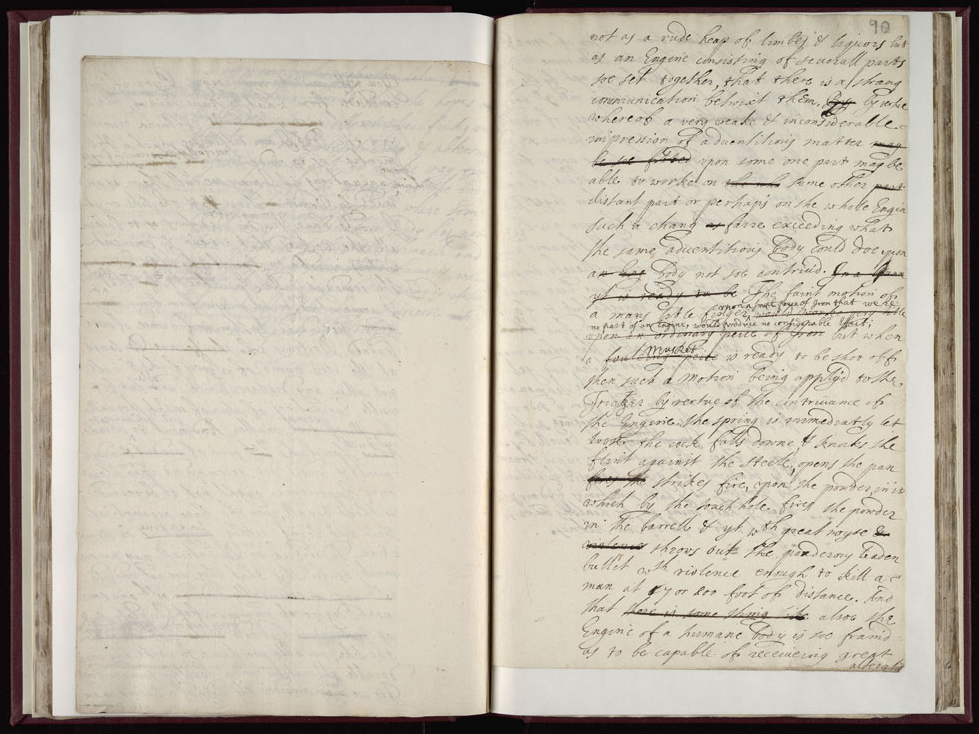 90
not as a rude heap of limbes & liquors but
as an Engine consisting of severall parts
soe set together, that there is a strang
communication betwixt them, by vertue
whereof a very weake & inconsiderable
impression of adventitious matter may
be soe fitted upon some one part may be
able to worke on the whole some other part
distant part or perhaps on the whole Engin
such a chang as farre exceeding what
the same adventitious Body could doe upon
an body not soe contriud.
yt is ready to be The faint motion of
a mans litle finger would
upon a small peice of Iron that were
no part of an Engine, would produce no considerable effect;
upon an ordinary peice of Iron but when
a fowling peice Musket is ready to be shot off
then such a Motion being applyd to the
Tricker by vertue of the contrivance of
the Engine, the spring is immediatly let
loose the cock falls downe & knoks the
flint against the steele, opens the pan
fires the strikes fire, upon the powder in it
which by the touch hole fires the powder
in the barrell & yt wth great noyse &
violence throws out the ponderous leaden
bullet wth violence enough to kill a
man at 7 or 800 foot of distance. And
that there is some thing like alsoe the
Engine of a humane Body is soe framd
as to be capable of receiveing great
alterati